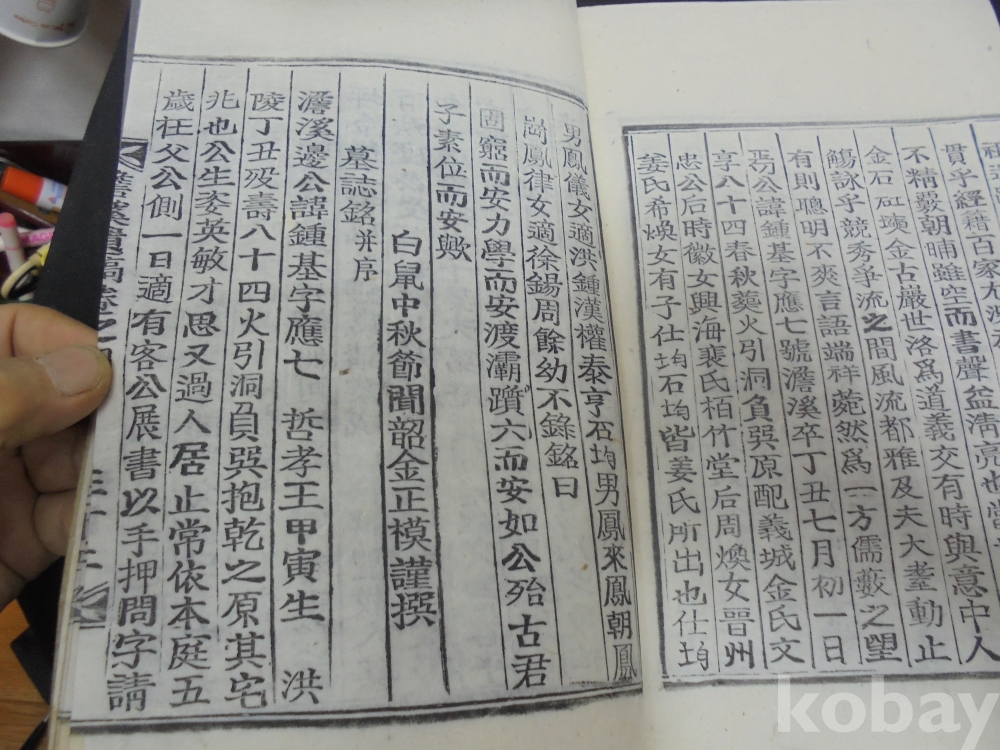 貫乎經籍百家
不精覈朝晡雖空而書聲益淸亮也
金石砥礪金古嚴世洛爲道義交有時與意中人
觴詠乎競秀爭流之間風流都雅及夫大耋動止
有則聰明不爽言語端祥菀然爲一方儒藪之望
焉公諱鍾基字應七號澹溪卒丁丑七月初一日
享八十四春秋葬火引洞負巽原配義城金氏文
忠公后時徽女興海裴氏栢竹堂后周煥女晉州
姜氏希煥女有子仕均石均皆姜氏所出也仕均
男鳳儀女適洪鍾漢權泰亨石均男鳳來鳳朝鳳
岗鳳律女適徐錫周餘幼不錄銘曰
固窮而安力學而安渡灞躓六而安如公殆古君
子素位而安歟
白鼠中秋節聞韶金正模謹撰
墓誌銘并序
澹溪邊公諱鍾基字應七 哲孝王甲寅生 洪
陵丁丑歿壽八十四火引洞負巽抱乾之原其宅
兆也公生委英敏才思又過人居止常依本庭五
歲在父公側一日適有客公展書以手押問字請
澹溪遺稿卷之
kobay